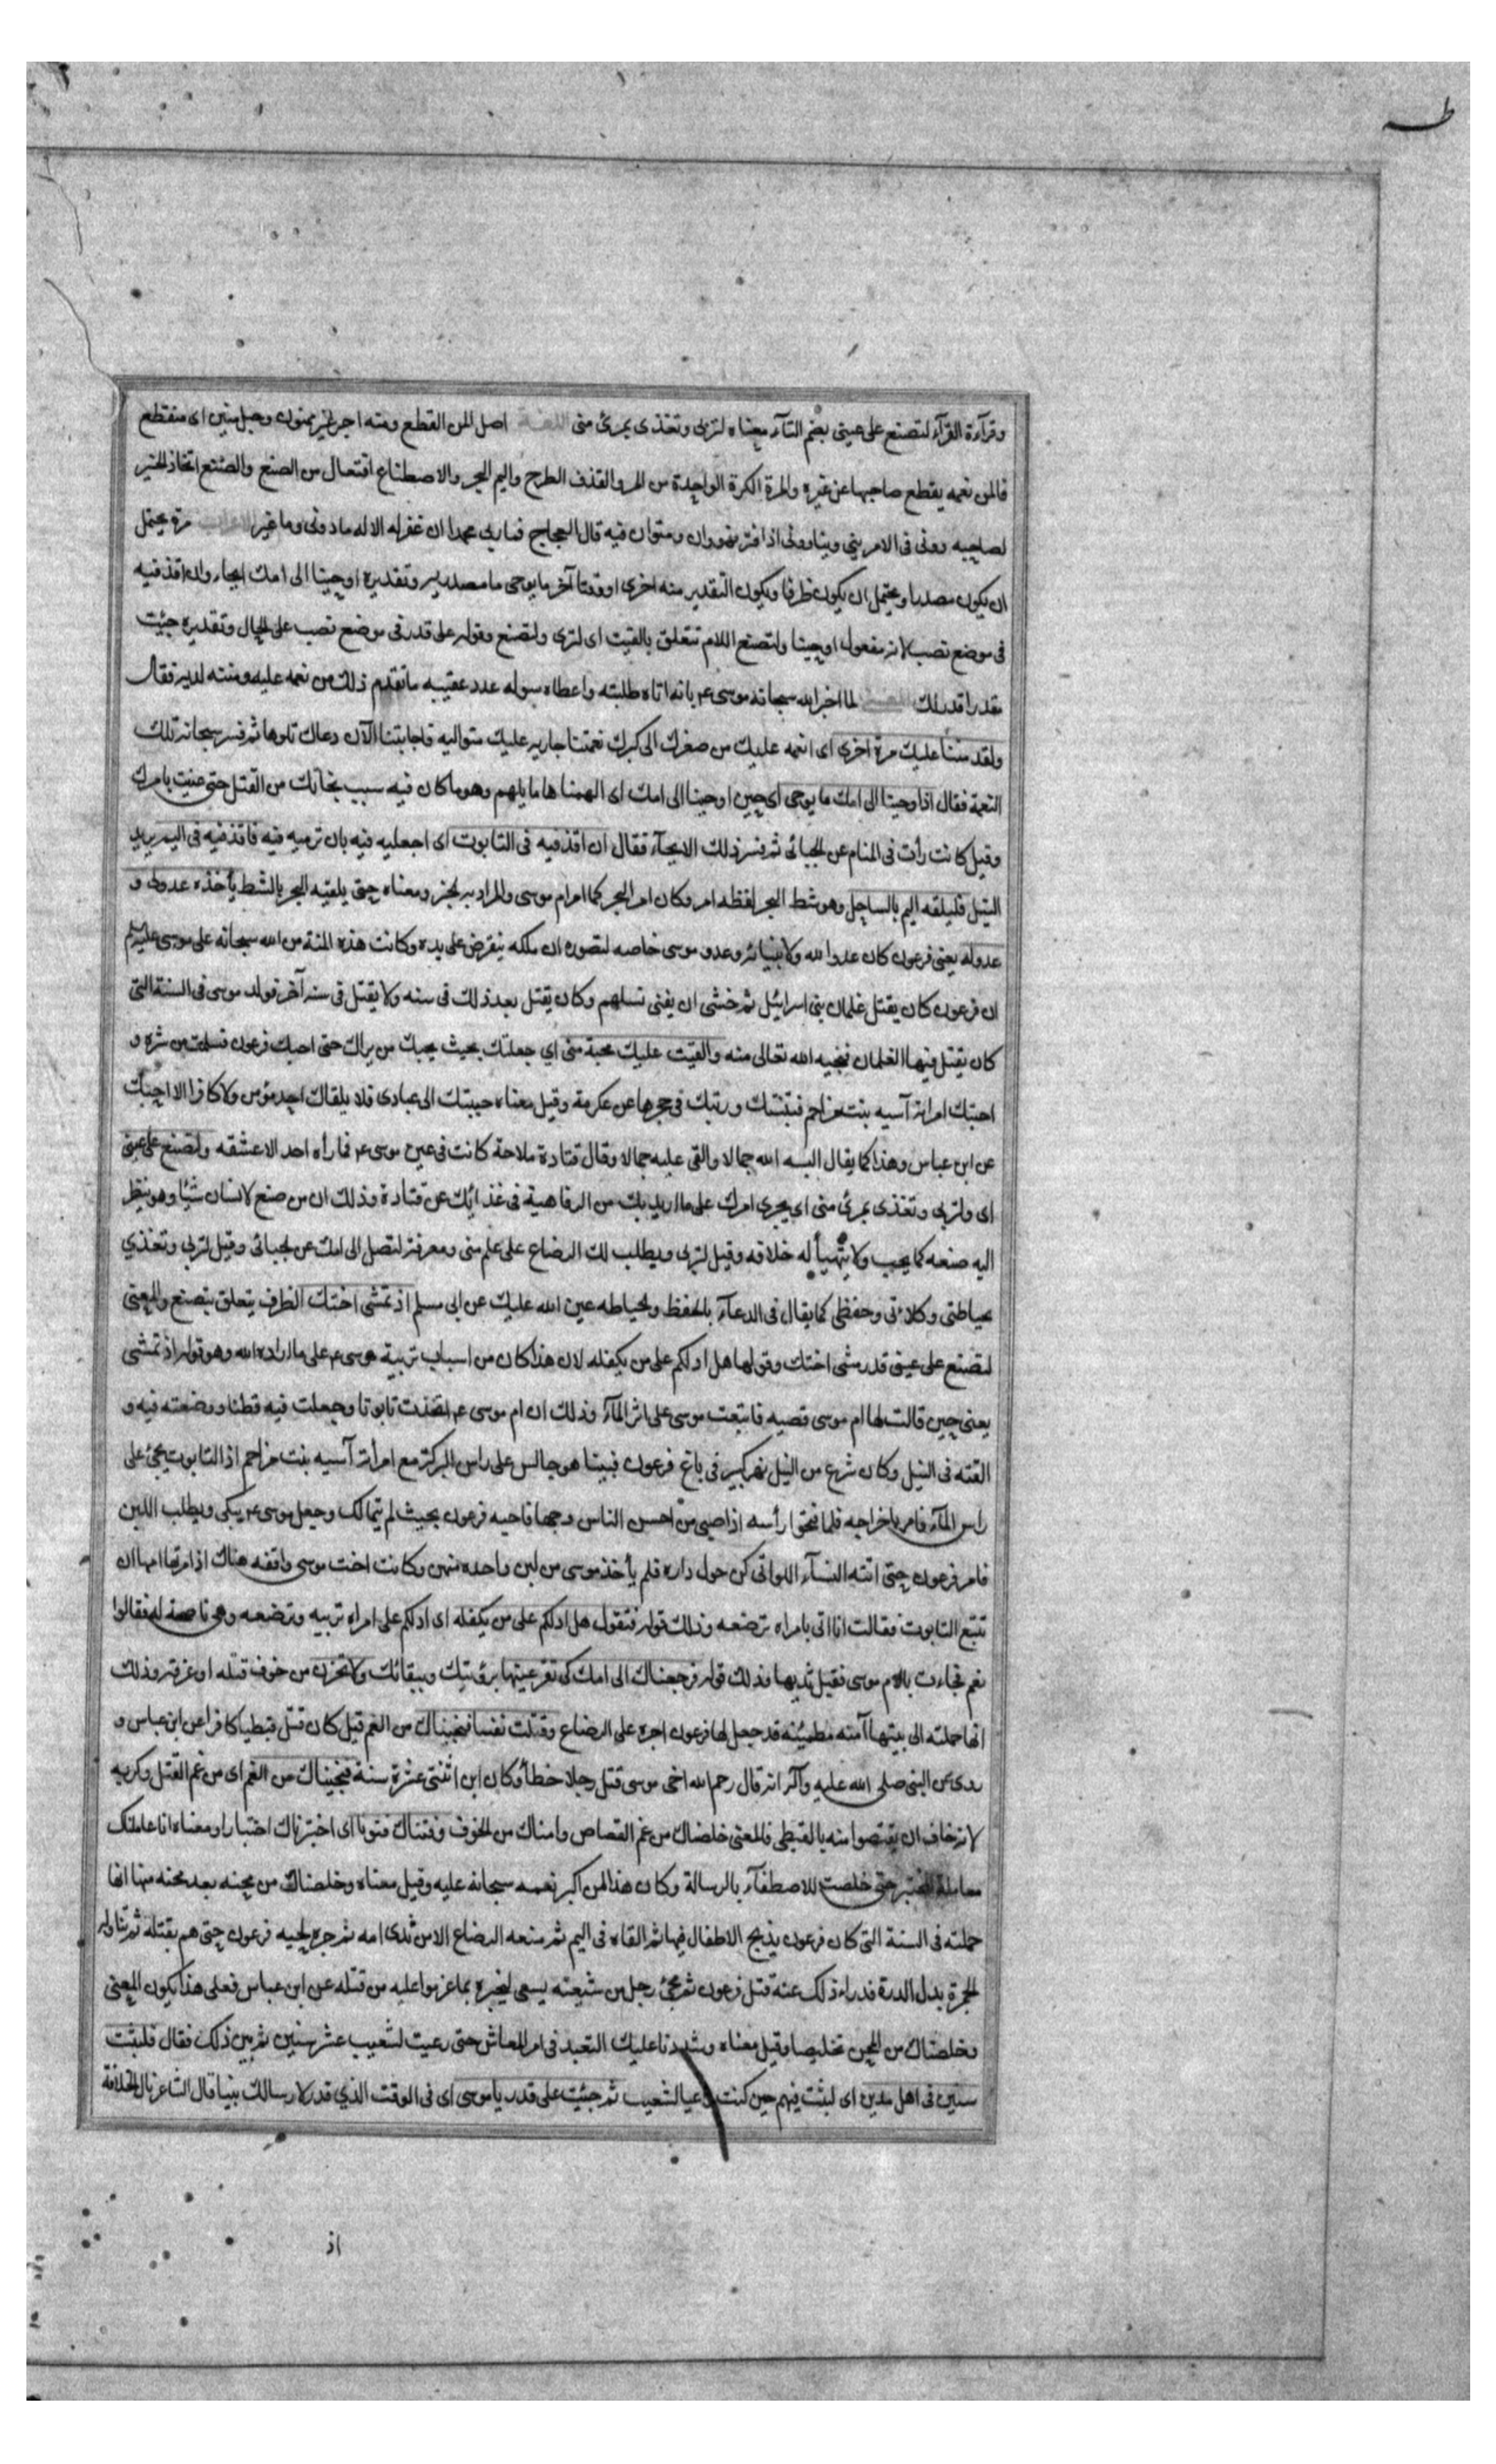 طه
وقرآءة القرآء لتصنع على عيني بضم التآء معناه لتربى وتغذى بمرئ منى اللغة اصل المن القطع ومنه اجر غير ممنون وحبل منين اى منقطع
فالمن نعمه يقطع صاحبها عن غيره والمرة الكرة الواحدة من المر والقذف الطرح واليم البحر والاصطناع افتعال من الصنع والصنع اتخاذ الخير
لصاحبه وونى فى الامر ينى ونيا وونى اذا فتر فهو وان ومتوان فيه قال العجاج فما ونى محمدا ان غفر له الاله ما دونى وما غبر الاعراب مرة يحتمل
ان يكون مصدرا ويحتمل ان يكون ظرفا ويكون التقدير منه اخرى او وقتا آخر ما يوحى ما مصدريه وتقديره اوحينا الى امك ايحاء وان اقذفيه
فى موضع نصب لانه مفعول اوحينا ولتصنع اللام تتعلق بالقيت اى لترى ولتصنع وقوله على قدر فى موضع نصب على الحال وتقديره جئيت
مقدرا قدر لك المعنى لما اخبر الله سبحانه موسى ع بانه اتاه طلبته واعطاه سوله عدد عقيبه ما تقدم ذلك من نعمه عليه ومننه لديه فقال
ولقد مننا عليك مرة اخرى اى انعمه عليك من صغرك الى كبرك نعمتنا جاريه عليك متواليه فاجابتنا الآن دعاك تلوها ثم فسر سبحانه تلك
النعمة فقال اذ اوحينا الى امك ما يوحى اى حين اوحينا الى امك اى الهمناها ما يلهم وهو ما كان فيه سبب نجاتك من القتل حتى عنيت بامرك
وقيل كانت رأت فى المنام عن الجبائى ثم فسر ذلك الايحآء فقال ان اقذفيه فى التابوت اى اجعليه فيه بان ترميه فيه فاقذفيه فى اليم يريد
النيل فليلقه اليم بالساحل وهو شط البحر لفظه امر وكان امر البحر كما امر ام موسى والمراد به الخبر ومعناه حتى يلقيه البحر بالشط يأخذه عدو لى و
عدو له يعنى فرعون كان عدوا لله ولانبيائه وعدو موسى خاصه لتصوره ان ملكه ينقرض على يده وكانت هذه المنة من الله سبحانه على موسى عليه السلم
ان فرعون كان يقتل غلمان بنى اسرائيل ثم خشى ان يفنى نسلهم وكان يقتل بعد ذلك فى سنه ولا يقتل فى سنه آخر فولد موسى فى السنة التى
كان يقتل فيها الغلمان فنجيه الله تعالى منه والقيت عليك محبة منى اى جعلتك بحيث يحبك من يراك حتى احبك فرعون فسلمت من شره و
احبتك امراته آسيه بنت مزاحم فتبنتك وربتك فى حجرها عن عكرمة وقيل معناه حببتك الى عبادى فلا يلقاك احد مؤمن ولا كافر الا احبك
عن ابن عباس وهذا كما يقال البسه الله جمالا والقى عليه جمالا وقال قتادة ملاحة كانت فى عين موسى ع فما رأه احد الا عشقه ولتصنع على عينى
اى ولتربى وتغذى بمرئ منى اى يجرى امرك على ما اريد بك من الرفاهية فى غذائك عن قتادة وذلك ان من صنع لانسان شيئا وهو ينظر
اليه صنعه كما يحب ولا يتهيأ له خلافه وقيل لتربى ويطلب لك الرضاع على علم منى ومعرفة لتصل الى امك عن الجبائى وقيل لتربى وتغذي
بحياطتى وكلائتى وحفظى كما يقال فى الدعآء بالحفظ والحياطه عين الله عليك عن ابى مسلم اذ تمشى اختك الظرف يتعلق بتصنع والمعنى
لتصنع على عينى قدر مشى اختك وقولها هل ادلكم على من يكفله لان هذا كان من اسباب تربية موسى ع على ما اراده الله وهو قوله اذ تمشى
يعنى حين قالت لها ام موسى قصيه فاتبعت موسى على اثر المآء وذلك ان ام موسى ع اتخذت تابوتا وجعلت فيه قطنا ووضعته فيه و
القته فى النيل وكان شرع من النيل نهر كبير فى باغ فرعون فبينا هو جالس على راس البركة مع امرأته آسيه بنت مزاحم اذ التابوت يجئ على
راس المآء فامر باخراجه فلما فتحوا رأسه اذا صبى من احسن الناس وجها فاحبه فرعون بحيث لم يتمالك وجعل موسى ع يبكى ويطلب اللبن
فامر فرعون حتى اتته النسآء اللواتى كن حول داره فلم يأخذ موسى من لبن واحده منهن وكانت اخت موسى واقفه هناك اذ امرتها امها ان
تتبع التابوت فقالت انا اتى بامراه ترضعه وذلك قوله فتقول هل ادلكم على من يكفله اى ادلكم على امراه تربيه وترضعه وهى ناصحة له فقالوا
نعم فجاءت بالام موسى فقبل ثديها فذلك قوله فرجعناك الى امك كى تقر عينها برؤيتك وببقائك ولا تحزن من خوف قتله او غرقه وذلك
انها حملته الى بيتها آمنه مطمئنه قد جعل لها فرعون اجره على الرضاع وقتلت نفسا فنجيناك من الغم قيل كان قتل قبطيا كافرا عن ابن عباس و
روى عن النبى صلى الله عليه وآله انه قال رحم الله اخى موسى قتل رجلا خطأ وكان ابن اثنتى عشرة سنة فنجيناك من الغم اى من غم القتل وكربه
لانه خاف ان يقتصوا منه بالقبطى فالمعنى خلصناك من غم القصاص وامناك من الخوف وفتناك فتونا اى اختبرناك اختبارا ومعناه انا عاملناك
معاملة المختبر حتى خلصت للاصطفآء بالرسالة وكان هذا من اكبر نعمه سبحانه عليه وقيل معناه وخلصناك من محنه بعد محنه منها انها
حملته فى السنة التى كان فرعون يذبح الاطفال فيها ثم القاه فى اليم ثم منعه الرضاع الا من ثدى امه ثم جره لحيه فرعون حتى هم بقتله ثم تناوله
الجمرة بدل الدرة فدراء ذلك عنه قتل فرعون ثم مجئ رجل من شيعته يسعى ليخبره بما عزموا عليه من قتله عن ابن عباس فعلى هذا يكون المعنى
وخلصناك من المحن تخليصا وقيل معناه وشددنا عليك التعبد فى امر المعاش حتى رعيت لشعيب عشر سنين ثم بين ذلك فقال فلبثت
سنين فى اهل مدين اى لبثت فيهم حين كنت راعيا لشعيب ثم جئيت على قدر يا موسى اى فى الوقت الذي قدر لارسالك نبيا قال الشاعر نال الخلافة
اذ